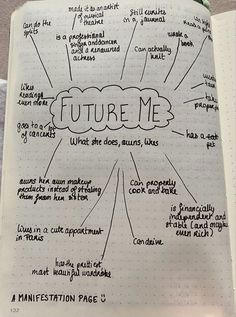 made it to an artist
of musical
theatre
Still writes
in a journal
can do the
splits
is a professional
singer and dancer
and a renowned
actress
Can actually
knit
book
likes
reading
even more
FUTURE ME
take
proper
goes to a lot
of concerts
What she does, owns, likes
has a
pet
owns her own makeup
products instead of stealing
them from her sister
can properly
cook and bake
is financially
independent and
stable (and maybe
even rich)
lives in a cute appartment
in Paris
can drive
has the prettiest,
most beautiful wardrobe
A MANIFESTATION PAGE
132